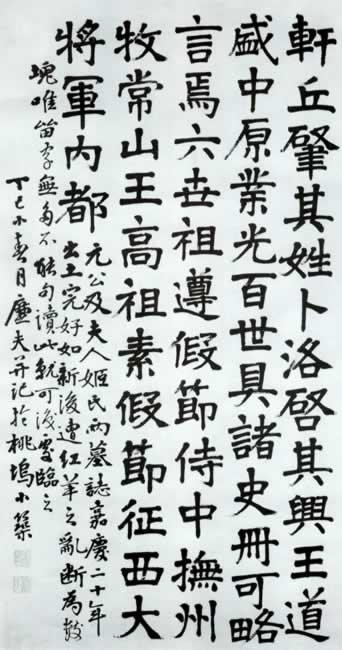 軒丘肇其姓卜洛啓其興王道
盛中原業光百世具諸史冊可略
言焉六世祖遵假節侍中撫州
牧常山王高祖素假節征西大
將軍内都
元公及夫人姬氏兩墓誌嘉慶二十年
出土完好如新後遭紅羊之亂斷為數
塊唯留字無多不能句讀此就可處臨之
丁巳小春月廉夫并記於桃塢小築